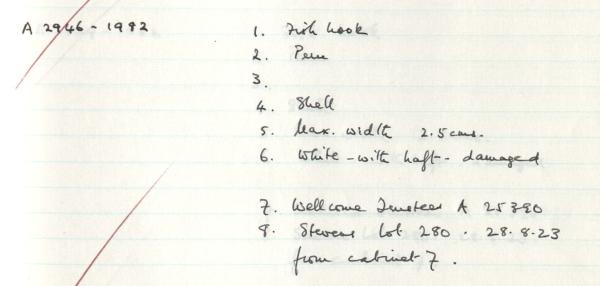 A 2946-1982 1. Fish hook
2. Peru
3.
4. Shell
5. Max. width 2.5cms.
6. White - with haft - damaged
7. Wellcome Trustees A 25390
8. Stevens Lot 280 . 28.8.23
from cabinet 7.